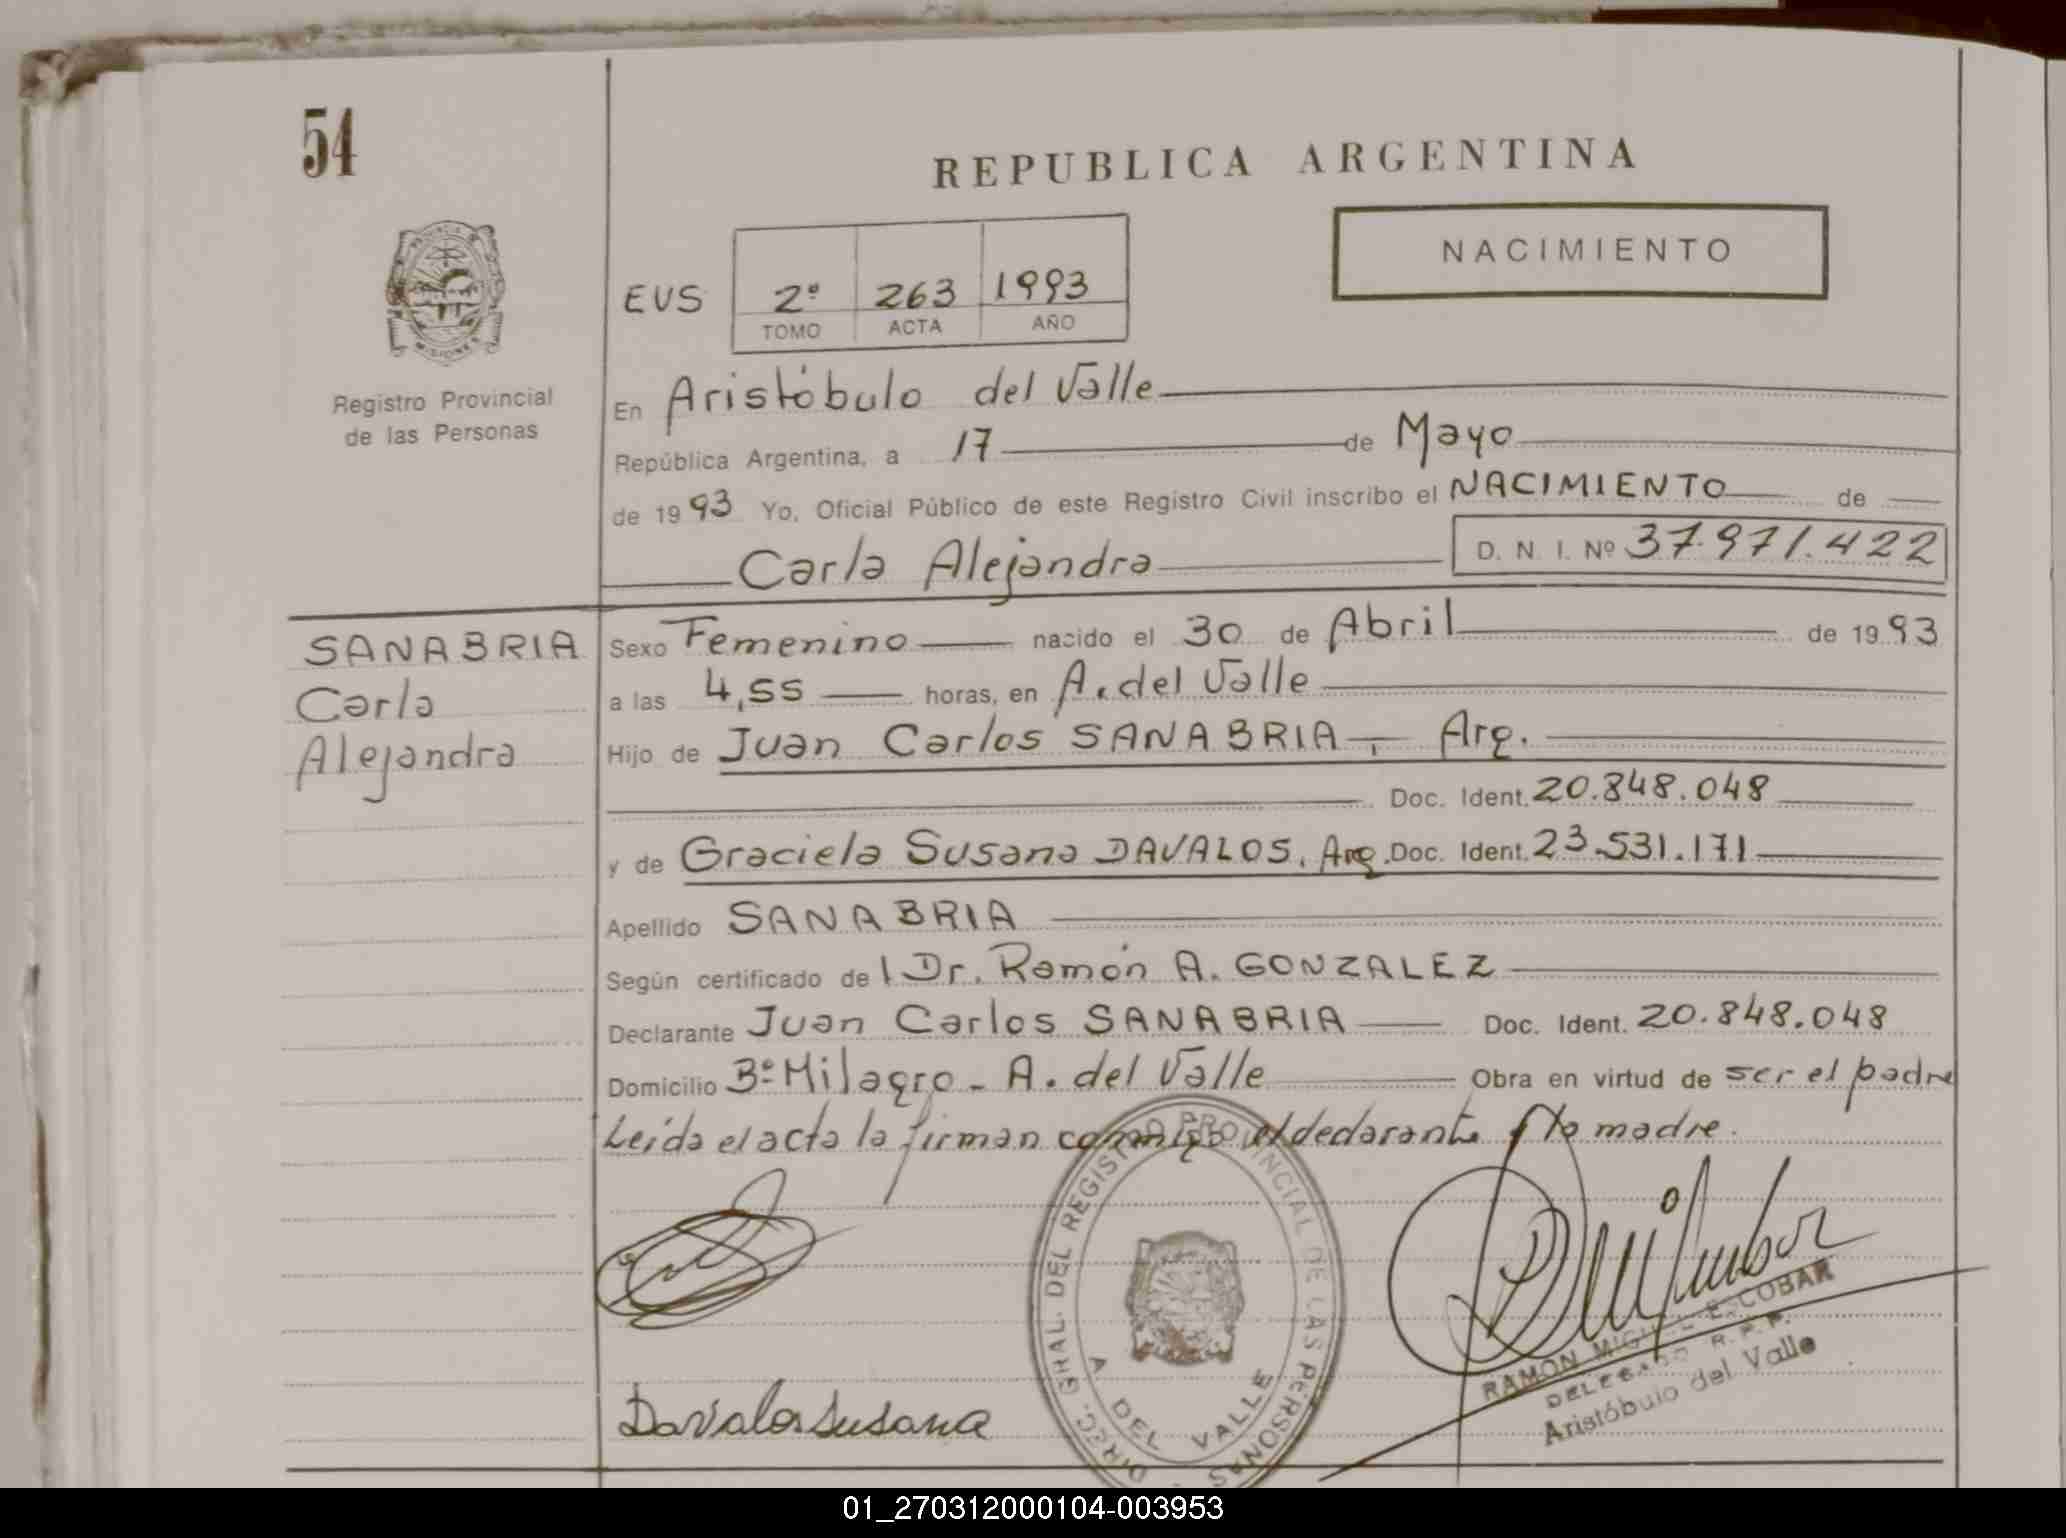 54
REPUBLICA ARGENTINA
NACIMIENTO
EUS 2º 263 1993
TOMO ACTA AÑO
PROVINCIA DE MISIONES
Registro Provincial
de las Personas
En Aristóbulo del Valle
República Argentina, a 17 de Mayo
de 1993 Yo, Oficial Público de este Registro Civil inscribo el NACIMIENTO de
Carla Alejandra D. N. I. Nº 37.971.422
SANABRIA
Carla
Alejandra
Sexo Femenino nacido el 30 de Abril de 1993
a las 4,55 horas, en A. del Valle
Hijo de Juan Carlos SANABRIA, Arg.
Doc. Ident. 20.848.048
y de Graciela Susana DAVALOS, Arg. Doc. Ident. 23.531.171
Apellido SANABRIA
Según certificado del Dr. Ramón A. GONZALEZ
Declarante Juan Carlos SANABRIA Doc. Ident. 20.848.048
Domicilio Bº Milagro - A. del Valle Obra en virtud de ser el padre
Leída el acta la firman conmigo el declarante y la madre.
DIREC. GRAL. DEL REGISTRO PROVINCIAL DE LAS PERSONAS
A. DEL VALLE
RAMON MIGUEL ESCOBAR
DELEGADO R.P.P.
Aristóbulo del Valle
Davalos Susana
01_270312000104-003953